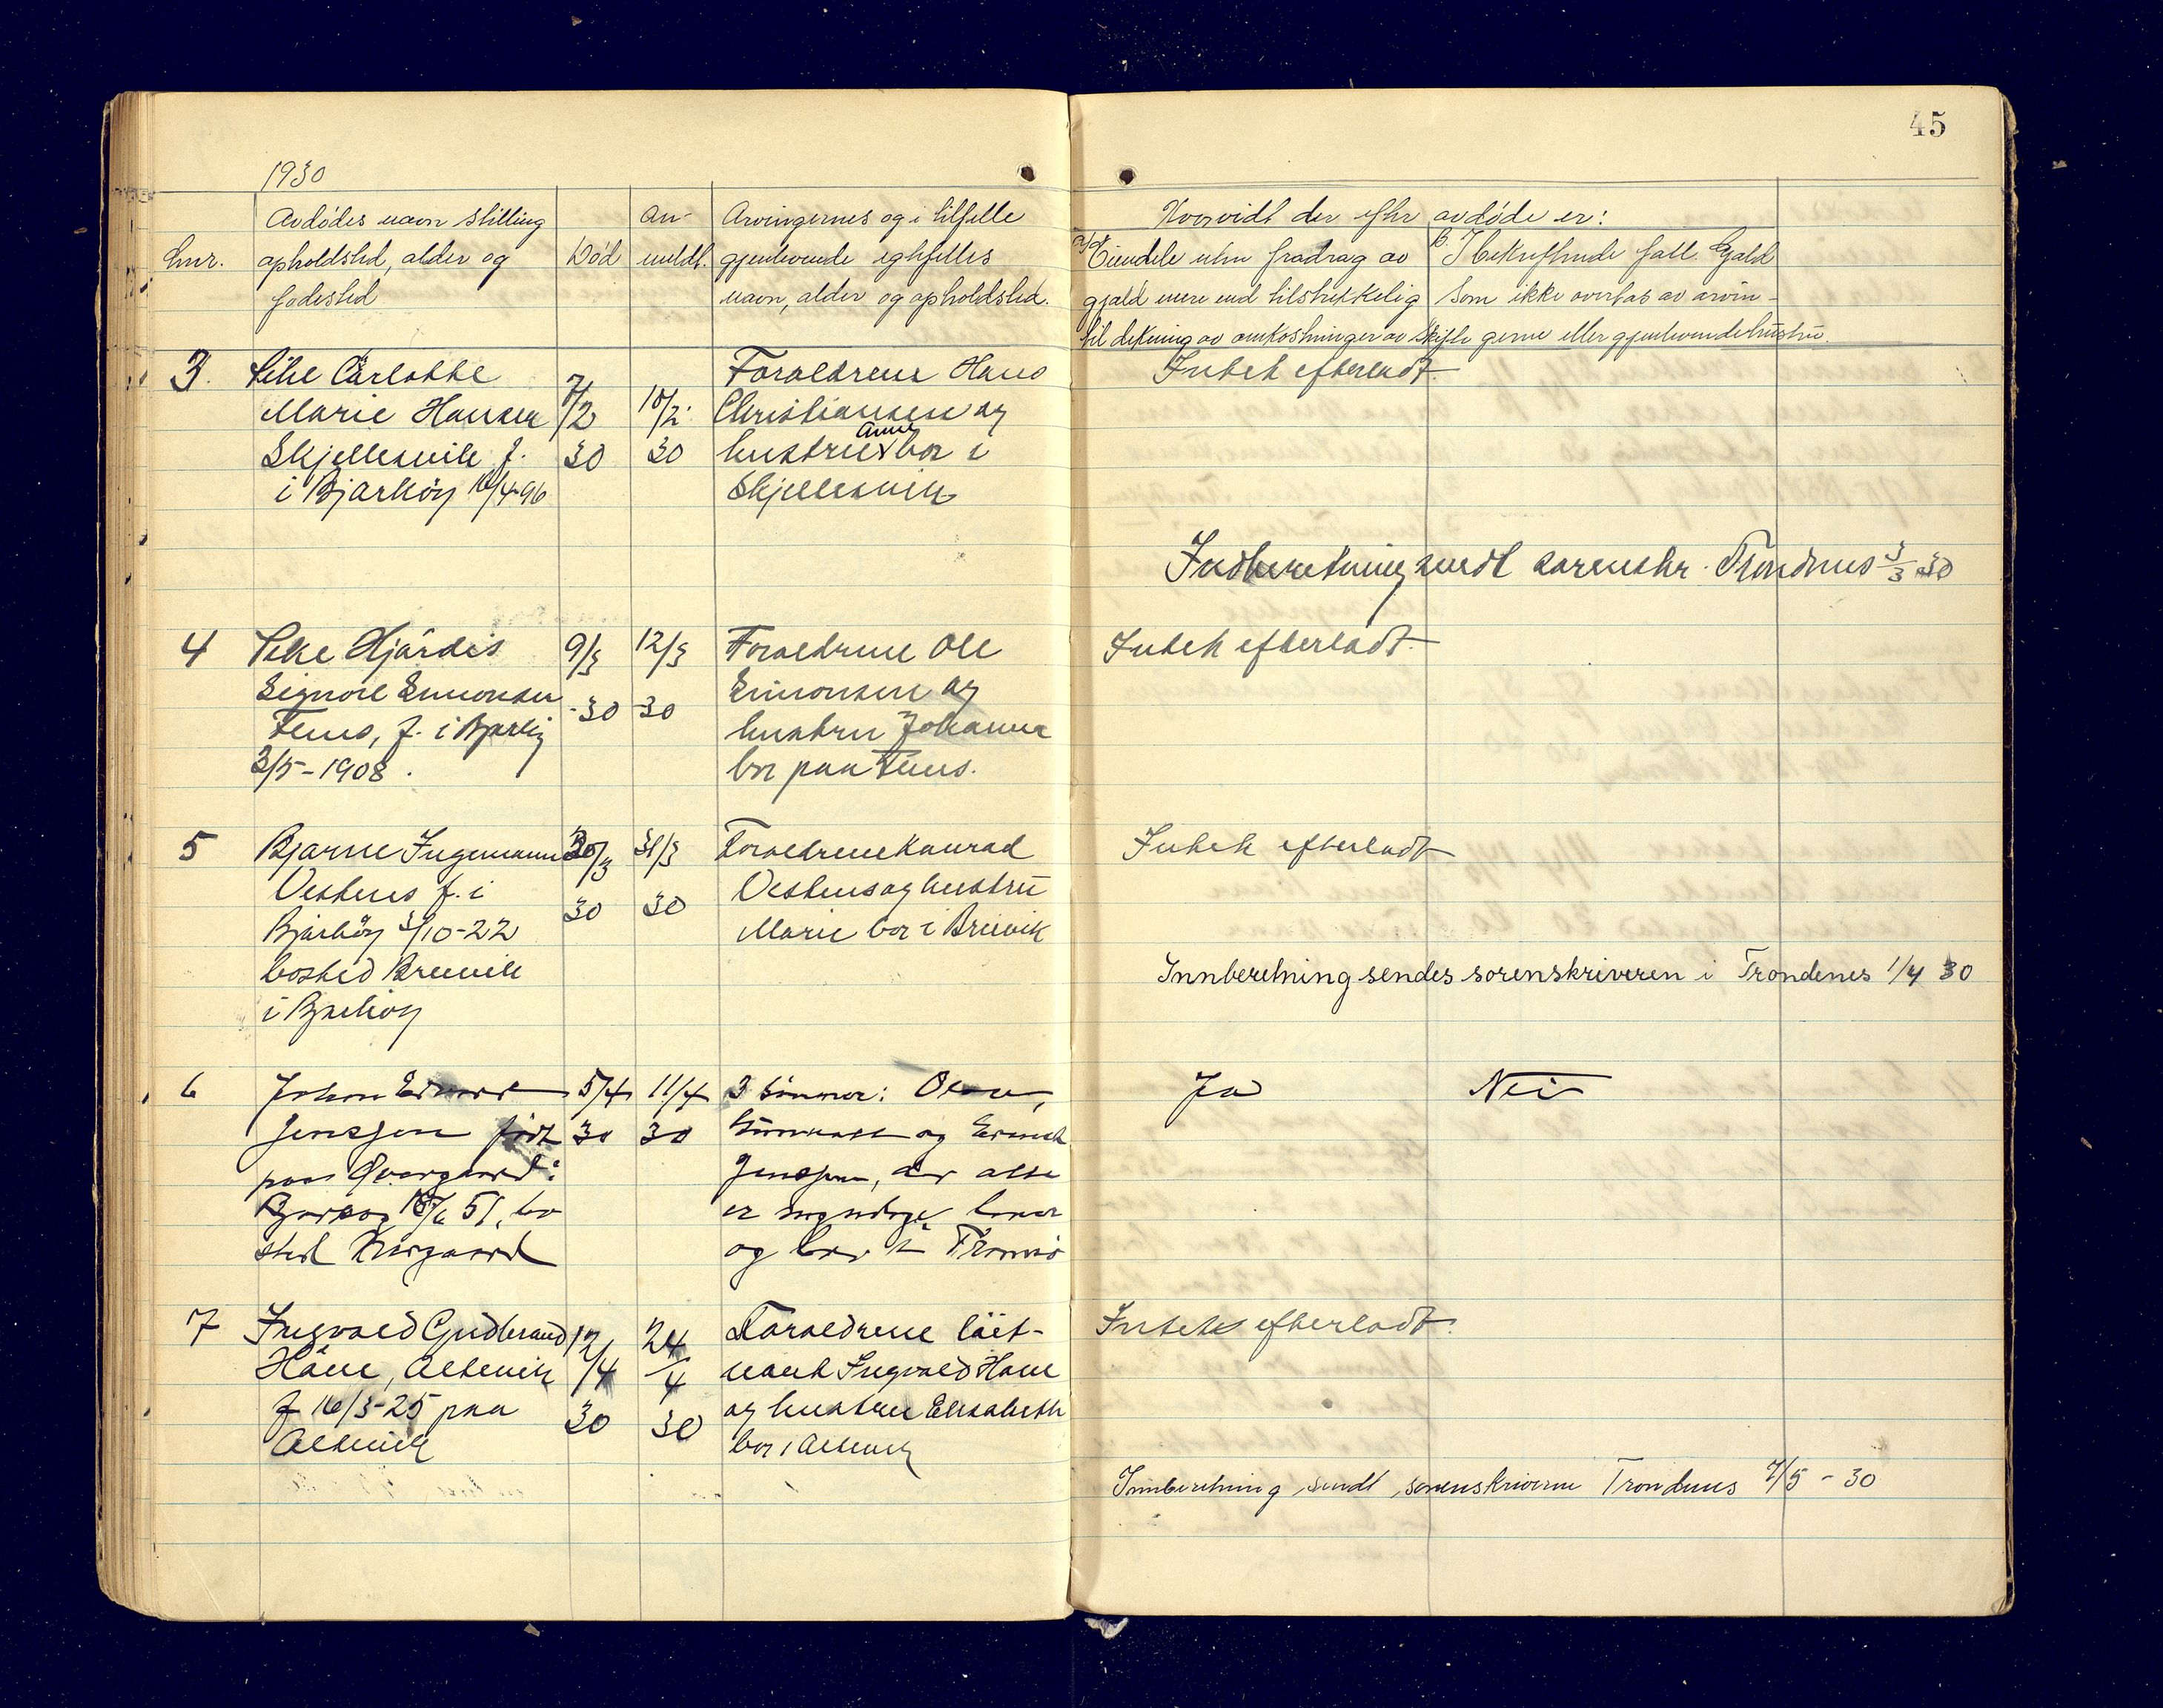 45
1930
Lnr.
Avdødes navn stilling
opholdsted, alder og
fødested
Død
An-
meldt.
Arvingernes og i tilfelle
gjenlevende egtefelles
navn, alder og opholdsted.
Hvorvidt der efter avdøde er:
Eiendele uten fradrag av
gjæld mere end tilstrekkelig
til dekning av omkostninger av skifte
B. I bekreftende fall. Gjæld
som ikke overtas av arvin-
gerne eller gjenlevende hustru.
3.
Pike Carlotte
Marie Hansen
Skjellesvik f.
i Bjarköy 16/4-96
7/2
30
10/2.
30
Foraldrene Hans
Christiansen og
hustru Anne bor i
Skjellesvik
Intet efterladt.
Indberetning sendt sorenskr. Trondenes 3/3 30
4
Pike Hjördis
Signore Simonsen
f. i Bjarköy
3/5-1908.
9/3
-30
12/3
-30
Foraldrene Ole
Simonsen og
hustru Johanna
bor paa
Intet efterladt.
5
Bjarne Ingemann
f. i
Bjarköy 3/10-22
bosted Breivik
i Bjarköy
30/3
30
31/3
30
Foraldrene Konrad
og hustru
Marie bor i Breivik
Intet efterladt
Innberetning sendes sorenskriveren i Trondenes 1/4 30
6
Johan Edvard
Jenssen født
paa i
Bjarköy 51, bo
sted
5/4
30
11/4
30
3 sönner:
og
Jenssen, der alle
er myndige
og bor i Tromsö
Ja
Nei
7
Ingvald Gudbrand
Håve, Altevik
f 16/3-25 paa
Altevik
12/4
30
24/4
30
Foraldrene löit-
nant Ingvald Have
og hustru Elisabeth
bor i Altevik
Intet efterladt.
Innberetning sendt sorenskriveren Trondenes 7/5 - 30